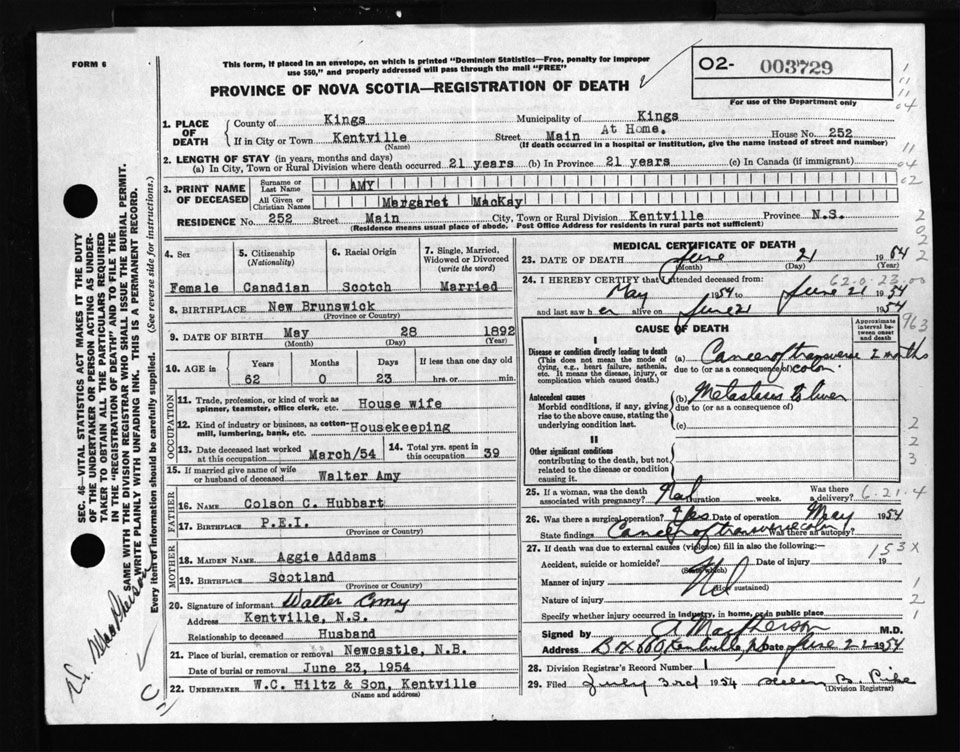 FORM 6
This form, if placed in an envelope, on which is printed "Dominion Statistics—Free, penalty for improper
use $50," and properly addressed will pass through the mail "FREE"
PROVINCE OF NOVA SCOTIA—REGISTRATION OF DEATH
O2- 003729
For use of the Department only
1. PLACE OF DEATH
County of Kings Municipality of Kings
At Home.
If in City or Town Kentville Street Main House No. 252
(Name) (If death occurred in a hospital or institution, give the name instead of street and number)
2. LENGTH OF STAY (in years, months and days)
(a) In City, Town or Rural Division where death occurred 21 years (b) In Province 21 years (c) In Canada (if immigrant)
3. PRINT NAME OF DECEASED
Surname or Last Name AMY
All Given or Christian Names Margaret MacKay
RESIDENCE No. 252 Street Main City, Town or Rural Division Kentville Province N.S.
(Residence means usual place of abode. Post Office Address for residents in rural parts not sufficient)
4. Sex Female
5. Citizenship (Nationality) Canadian
6. Racial Origin Scotch
7. Single, Married, Widowed or Divorced (write the word) Married
8. BIRTHPLACE New Brunswick
(Province or Country)
9. DATE OF BIRTH May 28 1892
(Month) (Day) (Year)
10. AGE in Years Months Days If less than one day old
62 0 23 hrs. or min.
OCCUPATION
11. Trade, profession, or kind of work as spinner, teamster, office clerk, etc. House wife
12. Kind of industry or business, as cotton-mill, lumbering, bank, etc. Housekeeping
13. Date deceased last worked at this occupation March/54
14. Total yrs. spent in this occupation 39
15. If married give name of wife or husband of deceased Walter Amy
FATHER
16. Name Colson C. Hubbart
17. BIRTHPLACE P.E.I.
(Province or Country)
MOTHER
18. MAIDEN NAME Aggie Addams
19. BIRTHPLACE Scotland
(Province or Country)
20. Signature of informant Walter Amy
Address Kentville, N.S.
Relationship to deceased Husband
21. Place of burial, cremation or removal Newcastle, N.B.
Date of burial or removal June 23, 1954
22. UNDERTAKER W.C. Hiltz & Son, Kentville
(Name and address)
MEDICAL CERTIFICATE OF DEATH
23. DATE OF DEATH June 21 1954
(Month) (Day) (Year)
24. I HEREBY CERTIFY that I attended deceased from:
May 1954 to June 21 1954
and last saw her alive on June 21 1954
CAUSE OF DEATH
Approximate interval between onset and death
I
Disease or condition directly leading to death
(This does not mean the mode of dying, e.g., heart failure, asthenia, etc. It means the disease, injury, or complication which caused death.)
(a) Cancer of transverse colon 2 months
due to (or as a consequence of)
Antecedent causes
Morbid conditions, if any, giving rise to the above cause, stating the underlying condition last.
(b) Metastases to liver
due to (or as a consequence of)
(c)
II
Other significant conditions
contributing to the death, but not related to the disease or condition causing it.
25. If a woman, was the death associated with pregnancy? No Duration weeks. Was there a delivery?
26. Was there a surgical operation? Yes Date of operation May 1954
State findings Cancer of transverse colon Was there an autopsy?
27. If death was due to external causes (violence) fill in also the following:—
Accident, suicide or homicide? Date of injury 19
(State which)
Manner of injury No
(How sustained)
Nature of injury
Specify whether injury occurred in industry, in home, or in public place
Signed by A MacPherson M.D.
Address Box 660 Kentville, NS Date June 22 1954
28. Division Registrar's Record Number 1
29. Filed July 3rd 1954 Helen B. Pike
(Division Registrar)
62-0-23-00
963
6-21-4
153X
SEC. 46—VITAL STATISTICS ACT MAKES IT THE DUTY
OF THE UNDERTAKER OR PERSON ACTING AS UNDER-
TAKER TO OBTAIN ALL THE PARTICULARS REQUIRED
IN THE "REGISTRATION OF DEATH" AND TO FILE THE
SAME WITH THE DIVISION REGISTRAR WHO SHALL ISSUE THE BURIAL PERMIT.
WRITE PLAINLY WITH UNFADING INK. THIS IS A PERMANENT RECORD.
Every item of information should be carefully supplied. (See reverse side for instructions.)